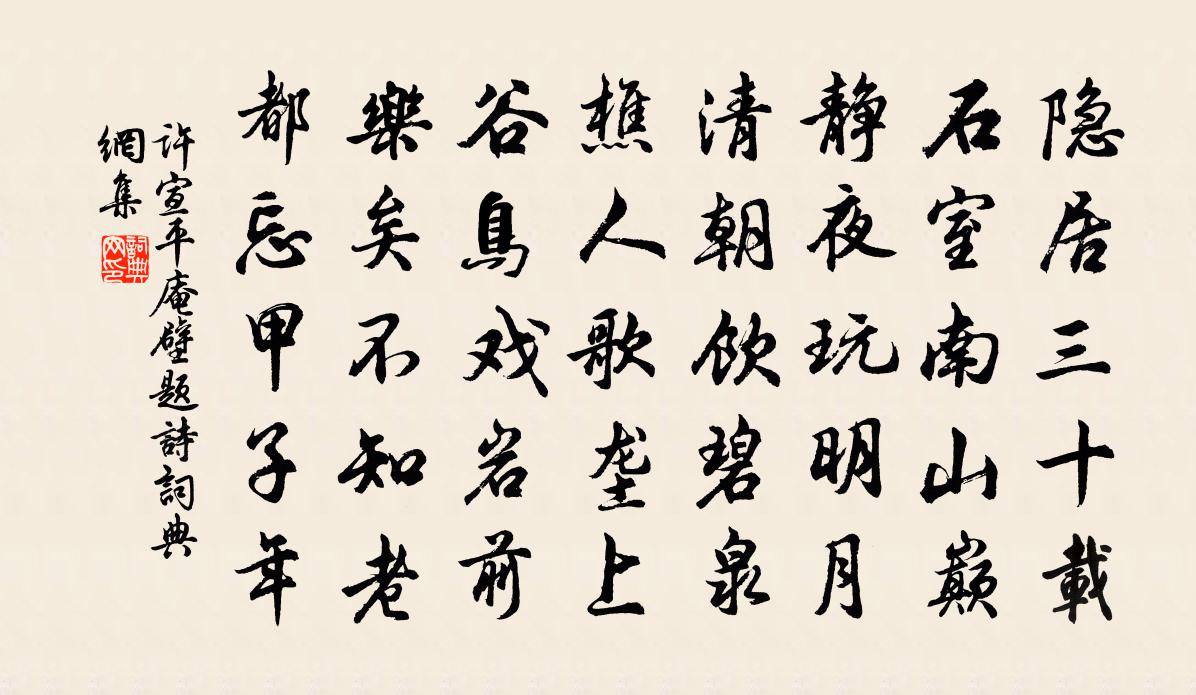 隐居三十載
石室南山巅
静夜玩明月
清朝饮碧泉
樵人歌垄上
谷鳥戏岩前
樂矣不知老
都忘甲子年
许宣平庵壁题詩詞典
網集
詞典
网印